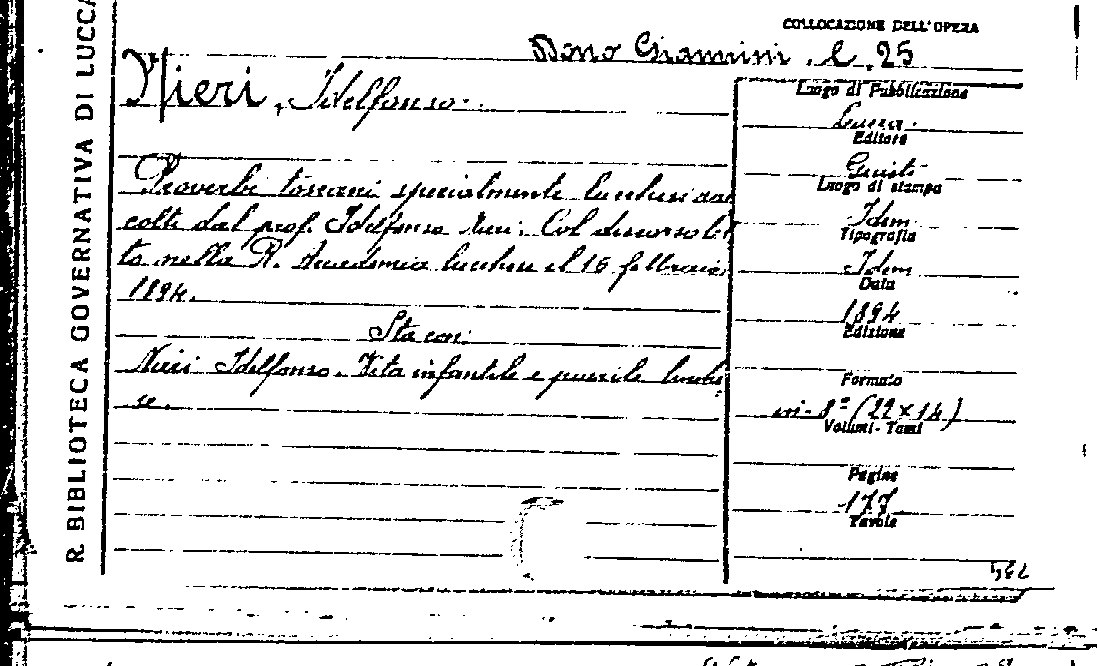 R. BIBLIOTECA GOVERNATIVA DI LUCCA
COLLOCAZIONE DELL'OPERA
Dono Giannini. C. 25
Nieri, Idelfonso.
Proverbi toscani specialmente lucchesi rac
colti dal prof. Idelfonso Nieri. Col discorso let
to nella R. Accademia lucchese il 15 febbraio
1894.
Sta con:
Nieri Idelfonso. Vita infantile e puerile lucche
se.
Luogo di Pubblicazione
Lucca.
Editore
Giusti
Luogo di stampa
Idem
Tipografia
Idem
Data
1894
Edizione
Formato
in-8º (22 x 14)
Volumi - Tomi
Pagine
177
Tavole